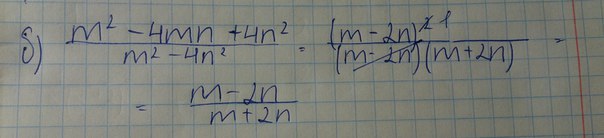 б) (m² - 4mn + 4n²)/(m² - 4n²) = (m - 2n)^{2 1}/((m - 2n)(m + 2n)) =
= (m - 2n)/(m + 2n)